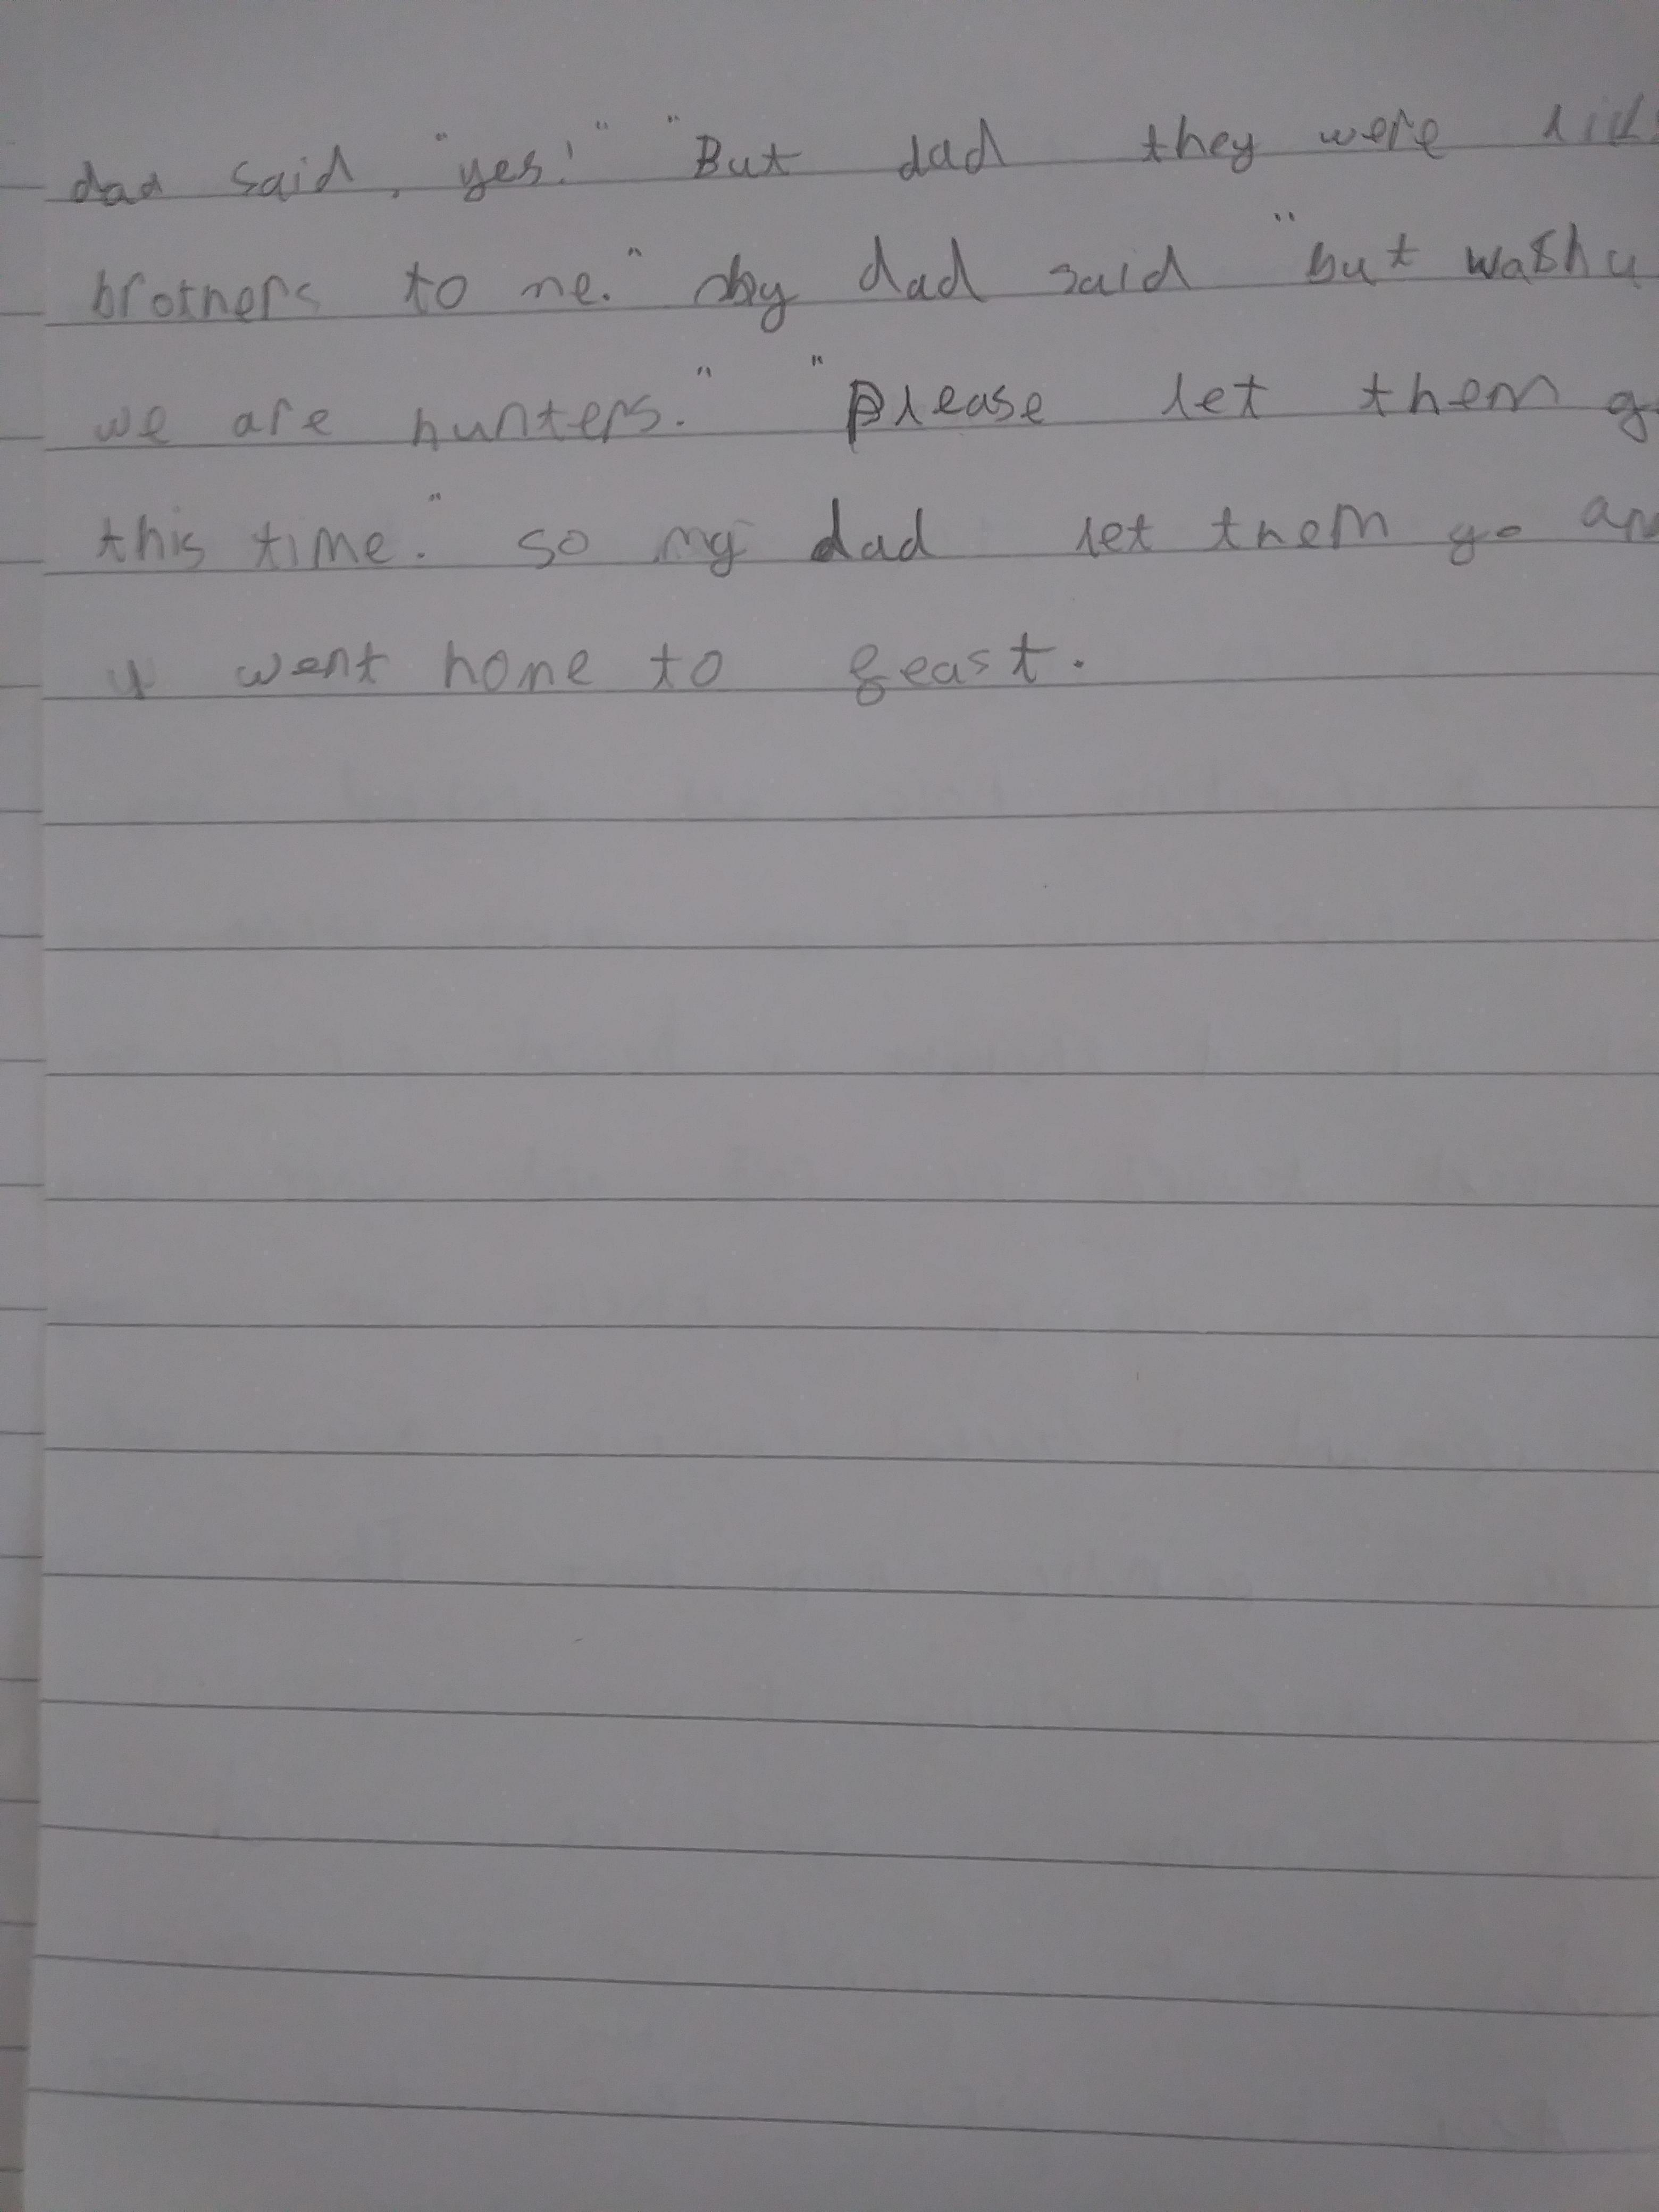 dad said, "yes!" "But dad they were
brothers to me." my dad said "but washu
we are hunters." "Please let them
this time." so my dad let them go
went home to feast.